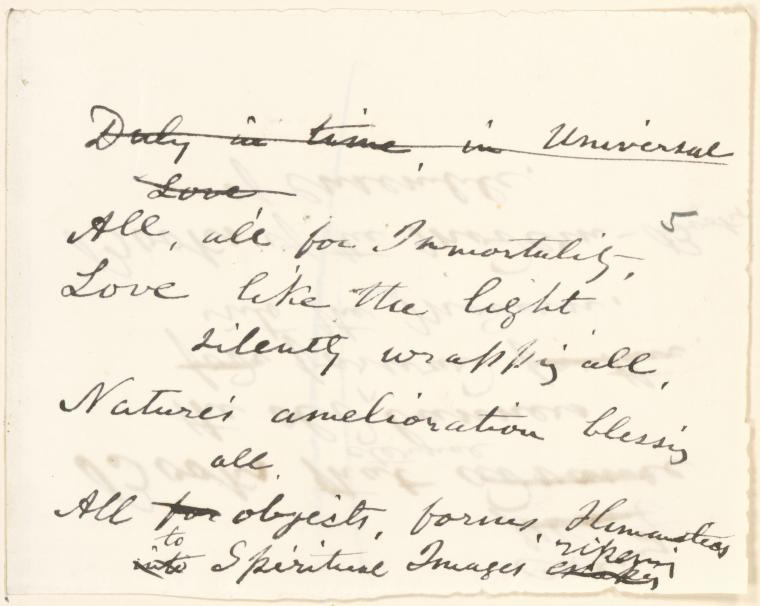 Duly in time, in Universal
Love,
5
All, all for Immortality,
Love like the light
silently wrapping all,
Nature's amelioration blessing
all
All for objects, forms, Humanities
to ripening
into Spiritual Images